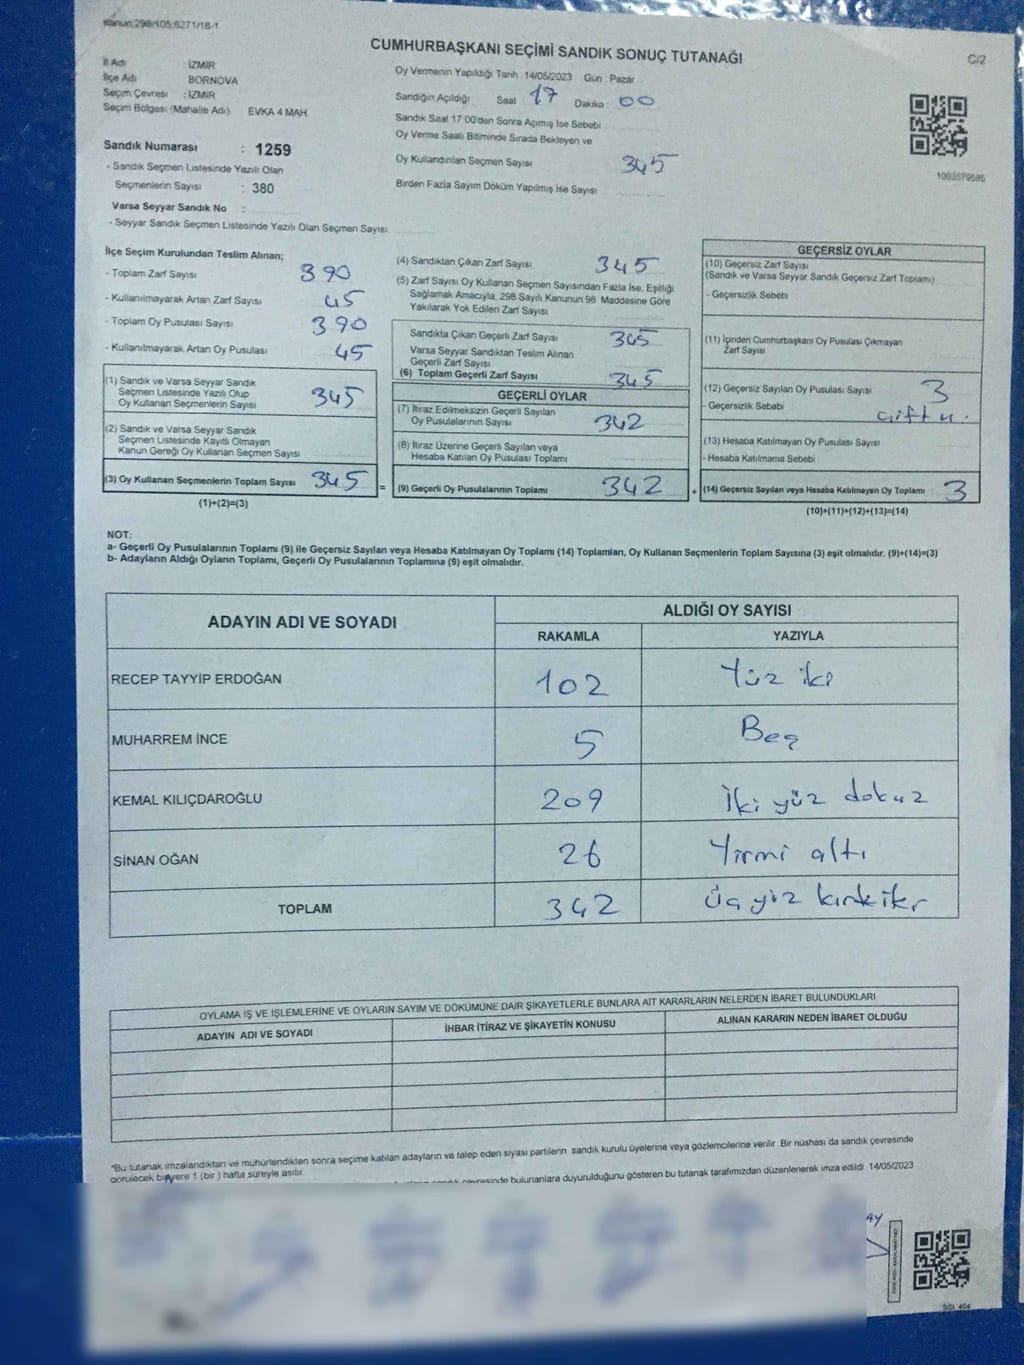 Kanun:298/105;6271/18-1
CUMHURBAŞKANI SEÇİMİ SANDIK SONUÇ TUTANAĞI
C/2
İl Adı : İZMİR
İlçe Adı : BORNOVA
Seçim Çevresi : İZMİR
Seçim Bölgesi (Mahalle Adı) EVKA 4 MAH
Sandık Numarası : 1259
- Sandık Seçmen Listesinde Yazılı Olan
Seçmenlerin Sayısı : 380
Varsa Seyyar Sandık No :
- Seyyar Sandık Seçmen Listesinde Yazılı Olan Seçmen Sayısı:
Oy Vermenin Yapıldığı Tarih :14/05/2023 Gün : Pazar
Sandığın Açıldığı Saat 17 Dakika : 00
Sandık Saat 17:00'den Sonra Açımış İse Sebebi
Oy Verme Saati Bitiminde Sırada Bekleyen ve
Oy Kullandırılan Seçmen Sayısı 345
Birden Fazla Sayım Döküm Yapılmış İse Sayısı
1093579585
İlçe Seçim Kurulundan Teslim Alınan;
- Toplam Zarf Sayısı 390
- Kullanılmayarak Artan Zarf Sayısı 45
- Toplam Oy Pusulası Sayısı 390
- Kullanılmayarak Artan Oy Pusulası 45
(1) Sandık ve Varsa Seyyar Sandık
Seçmen Listesinde Yazılı Olup
Oy Kullanan Seçmenlerin Sayısı 345
(2) Sandık ve Varsa Seyyar Sandık
Seçmen Listesinde Kayıtlı Olmayan
Kanun Gereği Oy Kullanan Seçmen Sayısı
(3) Oy Kullanan Seçmenlerin Toplam Sayısı 345 =
(1)+(2)=(3)
(4) Sandıktan Çıkan Zarf Sayısı 345
(5) Zarf Sayısı Oy Kullanan Seçmen Sayısından Fazla İse, Eşitliği
Sağlamak Amacıyla, 298 Sayılı Kanunun 98. Maddesine Göre
Yakılarak Yok Edilen Zarf Sayısı
Sandıkta Çıkan Geçerli Zarf Sayısı 345
Varsa Seyyar Sandıktan Teslim Alınan
Geçerli Zarf Sayısı
(6) Toplam Geçerli Zarf Sayısı 345
GEÇERLİ OYLAR
(7) İtiraz Edilmeksizin Geçerli Sayılan
Oy Pusulalarının Sayısı 342
(8) İtiraz Üzerine Geçerli Sayılan veya
Hesaba Katılan Oy Pusulası Toplamı
(9) Geçerli Oy Pusulalarının Toplamı 342 +
GEÇERSİZ OYLAR
(10) Geçersiz Zarf Sayısı
(Sandık ve Varsa Seyyar Sandık Geçersiz Zarf Toplamı)
- Geçersizlik Sebebi
(11) İçinden Cumhurbaşkanı Oy Pusulası Çıkmayan
Zarf Sayısı
(12) Geçersiz Sayılan Oy Pusulası Sayısı 3
- Geçersizlik Sebebi
(13) Hesaba Katılmayan Oy Pusulası Sayısı
- Hesaba Katılmama Sebebi
(14) Geçersiz Sayılan veya Hesaba Katılmayan Oy Toplamı 3
(10)+(11)+(12)+(13)=(14)
NOT:
a- Geçerli Oy Pusulalarının Toplamı (9) ile Geçersiz Sayılan veya Hesaba Katılmayan Oy Toplamı (14) Toplamları, Oy Kullanan Seçmenlerin Toplam Sayısına (3) eşit olmalıdır. (9)+(14)=(3)
b- Adayların Aldığı Oyların Toplamı, Geçerli Oy Pusulalarının Toplamına (9) eşit olmalıdır.
ADAYIN ADI VE SOYADI ALDIĞI OY SAYISI
RAKAMLA YAZIYLA
RECEP TAYYİP ERDOĞAN 102 Yüz iki
MUHARREM İNCE 5 Beş
KEMAL KILIÇDAROĞLU 209 İki yüz dokuz
SİNAN OĞAN 26 Yirmi altı
TOPLAM 342 üç yüz
OYLAMA İŞ VE İŞLEMLERİNE VE OYLARIN SAYIM VE DÖKÜMÜNE DAİR ŞİKAYETLERLE BUNLARA AİT KARARLARIN NELERDEN İBARET BULUNDUKLARI
ADAYIN ADI VE SOYADI İHBAR İTİRAZ VE ŞİKAYETİN KONUSU ALINAN KARARIN NEDEN İBARET OLDUĞU
*Bu tutanak imzalandıktan ve mühürlendikten sonra seçime katılan adayların ve talep eden siyasi partilerin sandık kurulu üyelerine veya gözlemcilerine verilir. Bir nüshası da sandık çevresinde
görülecek bir yere 1 (bir) hafta süreyle asılır.
çevresinde bulunanlara duyurulduğunu gösteren bu tutanak tarafımızdan düzenlenerek imza edildi. 14/05/2023